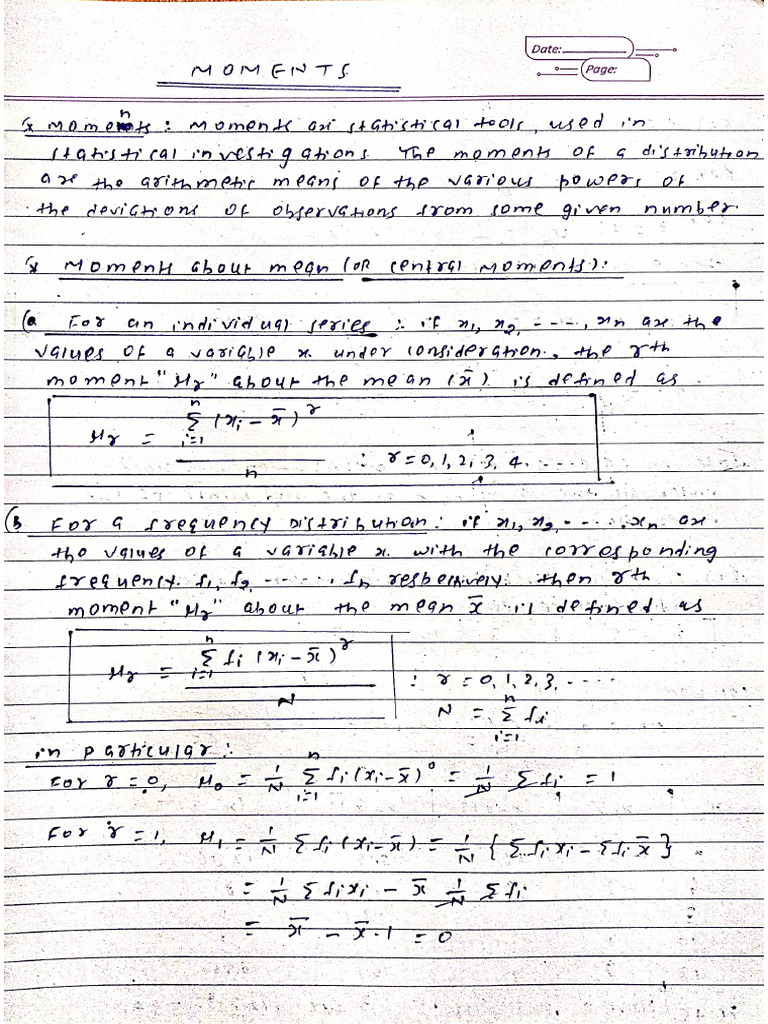 MOMENTS
Date:
Page:
x Moments: Moments are statistical tools, used in
statistical investigations. The moments of a distribution
are the arithmetic means of the various powers of
the deviations of observations from some given number.
x Moments about mean (OR central moments):
(a For an individual series : if x₁, x₂, -----, xn are the
values of a variable x. under consideration, the rth
moment "μr" about the mean (x̄) is defined as
μr = Σ_{i=1}^{n} (xi - x̄)^r / n : r = 0, 1, 2, 3, 4. ....
(B For a frequency Distribution: if x₁, x₂, ------, xn are
the values of a variable x. with the corresponding
frequency. f₁, f₂, ------, fn respectively. then rth
moment "μr" about the mean x̄ is defined as
μr = Σ_{i=1}^{n} fi (xi - x̄)^r / N : r = 0, 1, 2, 3, -----
N = Σ_{i=1}^{n} fi
in particular:
For r = 0, μ₀ = 1/N Σ_{i=1}^{n} fi (xi - x̄)⁰ = 1/N Σfi = 1
For r = 1, μ₁ = 1/N Σfi (xi - x̄) = 1/N { Σfixi - Σfi x̄ }
= 1/N Σfixi - x̄ 1/N Σfi
= x̄ - x̄·1 = 0